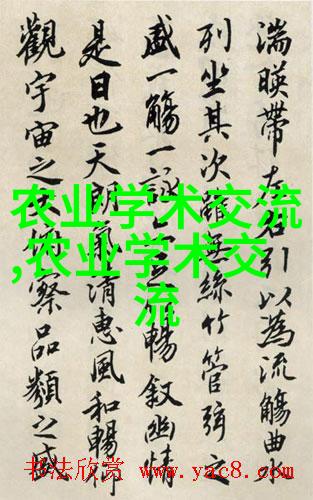 湍暎帶左右引以為流觴曲
列坐其次雖無絲竹管弦之
盛一觴一詠暢叙幽情
是日也天朗氣清惠風和暢仰
觀宇宙之俯察品類之盛
农业学术交流
,农业学术交
流
书法欣赏 www.yac8.com